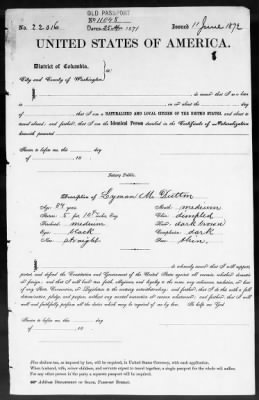 OLD PASSPORT
No. 11048
No. 22016 Dated 1871 Issued 11 June 1872
UNITED STATES OF AMERICA.
District of Columbia,
City and County of Washington,
that I am a NATURALIZED AND LOYAL CITIZEN OF THE UNITED STATES, and about to
travel abroad; and further, that I am the Identical Person described in the Certificate of Naturalization
herewith presented
Sworn to before me, this day
of 18
Notary Public.
Description of Lyman M. Dutton
Age: 34 years Mouth: medium
Stature: 5 feet 10 inches, Eng. Chin: dimpled
Forehead: medium Hair: dark brown
Eyes: black Complexion: dark
Nose: straight Face: thin.
I will support,
protect, and defend the Constitution and Government of the United States against all enemies, whether domestic
or foreign; and that I will bear true faith, allegiance, and loyalty to the same, any ordinance, resolution, or law
of any State, Convention, or Legislature to the contrary notwithstanding; and further, that I do this with a full
determination, pledge, and purpose, without any mental reservation or evasion whatsoever; and further, that I will
well and faithfully perform all the duties which may be required of me by law. So help me God
Sworn to before me, this day
of 18
Five dollars tax, as imposed by law, will be required, in United States Currency, with each application.
When a husband, wife, minor children, and servants expect to travel together, a single passport for the whole will suffice.
For any other person in the party a separate passport will be required.
Address Department of State, Passport Bureau.